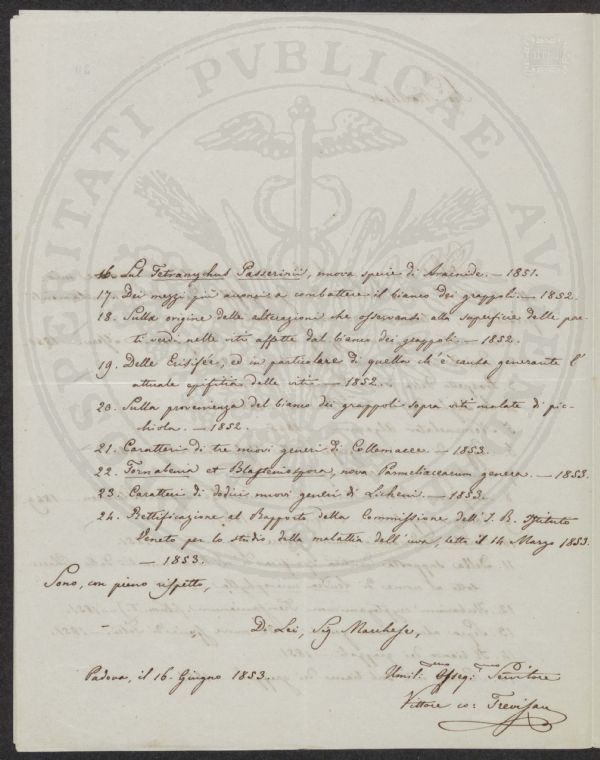 PROSPERITATI PVBLICAE AVGENDAE
16. Sul Tetranychus Passerinii, nuova specie di Araineide. — 1851.
17. Dei mezzi più acconci a combattere il bianco dei grappoli. — 1852.
18. Sulla origine delle alterazioni che osservansi alla superficie delle par-
ti verdi nelle viti affette dal bianco dei grappoli. — 1852.
19. Delle Erisifee, ed in particolare di quella ch'è causa generante l'
attuale epifitia delle viti. — 1852.
20. Sulla provenienza del bianco dei grappoli sopra viti malate di pic-
chiola. — 1852.
21. Caratteri di tre nuovi generi di Collemacee. — 1853.
22. Tornabenia et Blasteniospora, nova Parmeliacearum genera. — 1853.
23. Caratteri di dodici nuovi generi di Licheni. — 1853.
24. Rettificazione al Rapporto della Commissione dell'I. R. Istituto
Veneto per lo studio della malattia dell'uva, letto il 14 Marzo 1853.
— 1853.
Sono, con pieno rispetto,
Di Lei, Sig Marchese,
Padova, il 16 Giugno 1853.
Umil: Osseq: Servitore
Vittore co: Trevisan